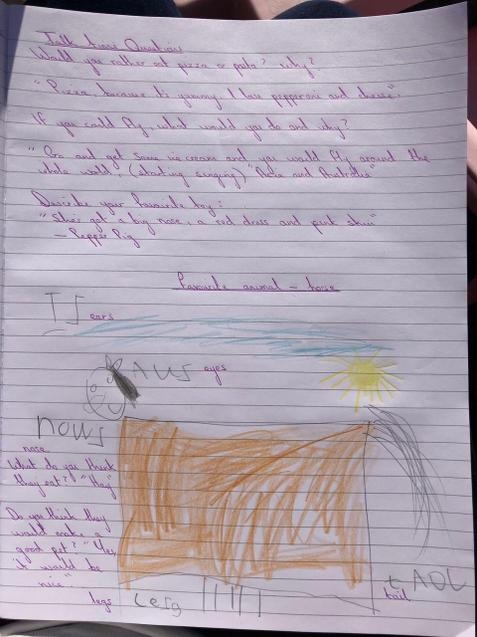 Talk time Questions
Would you rather eat pizza or pasta? Why?
"Pizza, because it's yummy. I love pepperoni and cheese".
If you could fly, what would you do and why?
"Go and get some ice cream and, you would fly around the
whole world (starting singing) "Asia and Australia"
Describe your favourite toy:
"She's got a big nose, a red dress and pink skin"
- Peppa Pig
Favourite animal - horse
ears
eyes
nows
nose
What do you think
they eat? "Hay"
Do you think they
would make a
good pet? "Yes,
it would be
nice".
legs
tail